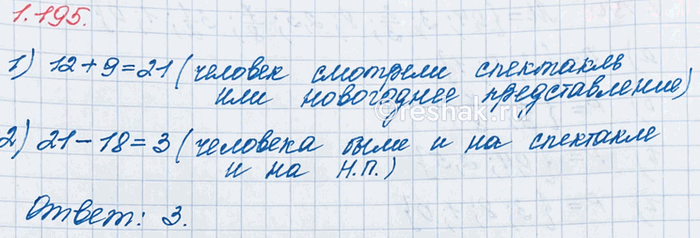 1.195.
1) 12+9=21 (человек смотрели спектакль
или новогоднее представление)
©reshak.ru
2) 21-18=3 (человека были и на спектакле
и на Н.П.)
Ответ: 3.